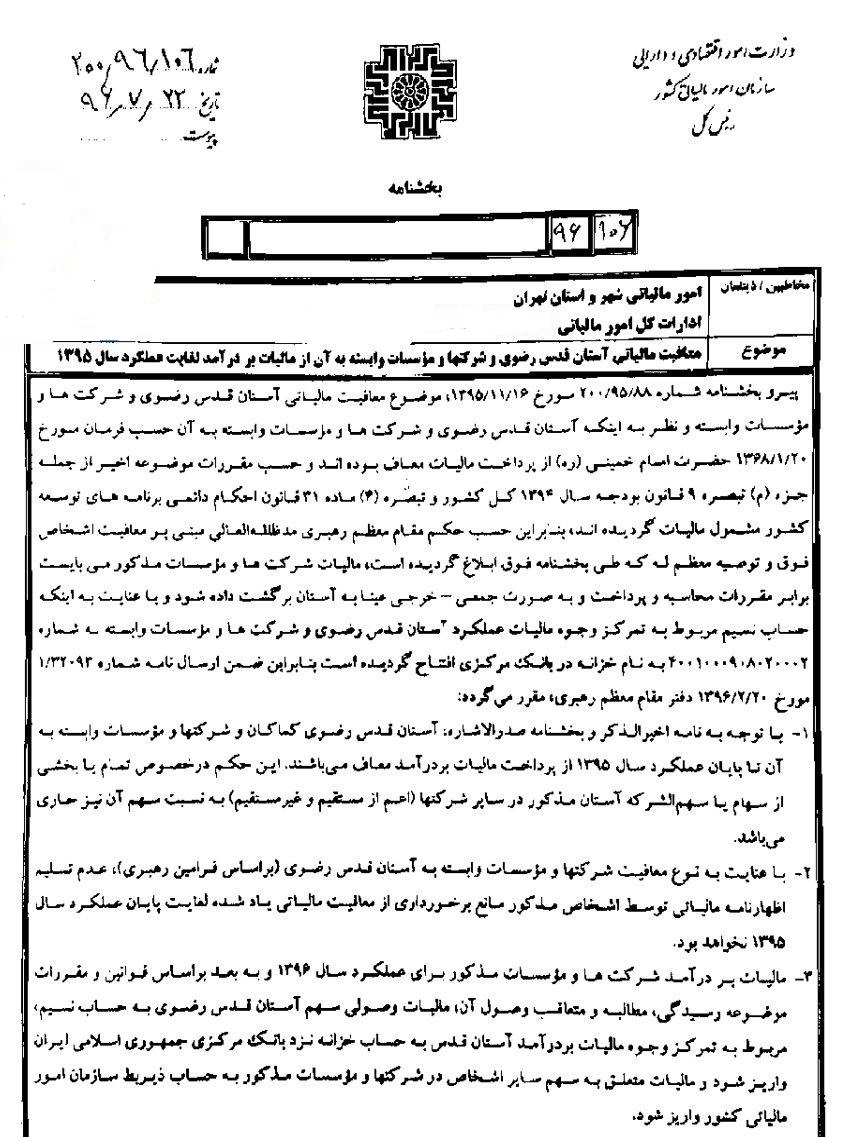 وزارت امور اقتصادی و دارایی
سازمان امور مالیاتی کشور
رئیس کل
شماره ۲۰۰/۹۶/۱۰۶
تاریخ ۹۶/۷/۲۲
پیوست
بخشنامه
۱۰۶ ۹۶
مخاطبین / ذینفعان
امور مالیاتی شهر و استان تهران
ادارات کل امور مالیاتی
موضوع
معافیت مالیاتی آستان قدس رضوی و شرکتها و مؤسسات وابسته به آن از مالیات بر درآمد لغایت عملکرد سال ۱۳۹۵
پیرو بخشنامه شماره ۲۰۰/۹۵/۸۸ مورخ ۱۳۹۵/۱۱/۱۶، موضوع معافیت مالیاتی آستان قدس رضوی و شرکت ها و
مؤسسات وابسته و نظر به اینکه آستان قدس رضوی و شرکت ها و مؤسسات وابسته به آن حسب فرمان مورخ
۱۳۶۸/۱/۲۰ حضرت امام خمینی (ره) از پرداخت مالیات معاف بوده اند و حسب مقررات موضوعه اخیر از جمله
جزء (م) تبصره ۹ قانون بودجه سال ۱۳۹۴ کل کشور و تبصره (۴) ماده ۳۱ قانون احکام دائمی برنامه های توسعه
کشور مشمول مالیات گردیده اند، بنابراین حسب حکم مقام معظم رهبری مدظلله‌العالی مبنی بر معافیت اشخاص
فوق و توصیه معظم له که طی بخشنامه فوق ابلاغ گردیده است، مالیات شرکت ها و مؤسسات مذکور می بایست
برابر مقررات محاسبه و پرداخت و به صورت جمعی – خرجی عینا به آستان برگشت داده شود و با عنایت به اینکه
حساب نسیم مربوط به تمرکز وجوه مالیات عملکرد آستان قدس رضوی و شرکت ها و مؤسسات وابسته به شماره
۴۰۰۱۰۰۰۹۰۸۰۲۰۰۰۲ به نام خزانه در بانک مرکزی افتتاح گردیده است بنابراین ضمن ارسال نامه شماره ۱/۳۲۰۹۳
مورخ ۱۳۹۶/۲/۲۰ دفتر مقام معظم رهبری، مقرر می‌گردد:
۱- با توجه به نامه اخیرالذکر و بخشنامه صدرالاشاره، آستان قدس رضوی کماکان و شرکتها و مؤسسات وابسته به
آن تا پایان عملکرد سال ۱۳۹۵ از پرداخت مالیات بر درآمد معاف می‌باشند. این حکم درخصوص تمام یا بخشی
از سهام یا سهم‌الشرکه آستان مذکور در سایر شرکتها (اعم از مستقیم و غیرمستقیم) به نسبت سهم آن نیز جاری
می‌باشد.
۲- با عنایت به نوع معافیت شرکتها و مؤسسات وابسته به آستان قدس رضوی (براساس فرامین رهبری)، عدم تسلیم
اظهارنامه مالیاتی توسط اشخاص مذکور مانع برخورداری از معافیت مالیاتی یاد شده لغایت پایان عملکرد سال
۱۳۹۵ نخواهد بود.
۳- مالیات بر درآمد شرکت ها و مؤسسات مذکور برای عملکرد سال ۱۳۹۶ و به بعد براساس قوانین و مقررات
موضوعه رسیدگی، مطالبه و متعاقب وصول آن، مالیات وصولی سهم آستان قدس رضوی به حساب نسیم،
مربوط به تمرکز وجوه مالیات بردرآمد آستان قدس به حساب خزانه نزد بانک مرکزی جمهوری اسلامی ایران
واریز شود و مالیات متعلق به سهم سایر اشخاص در شرکتها و مؤسسات مذکور به حساب ذیربط سازمان امور
مالیاتی کشور واریز شود.